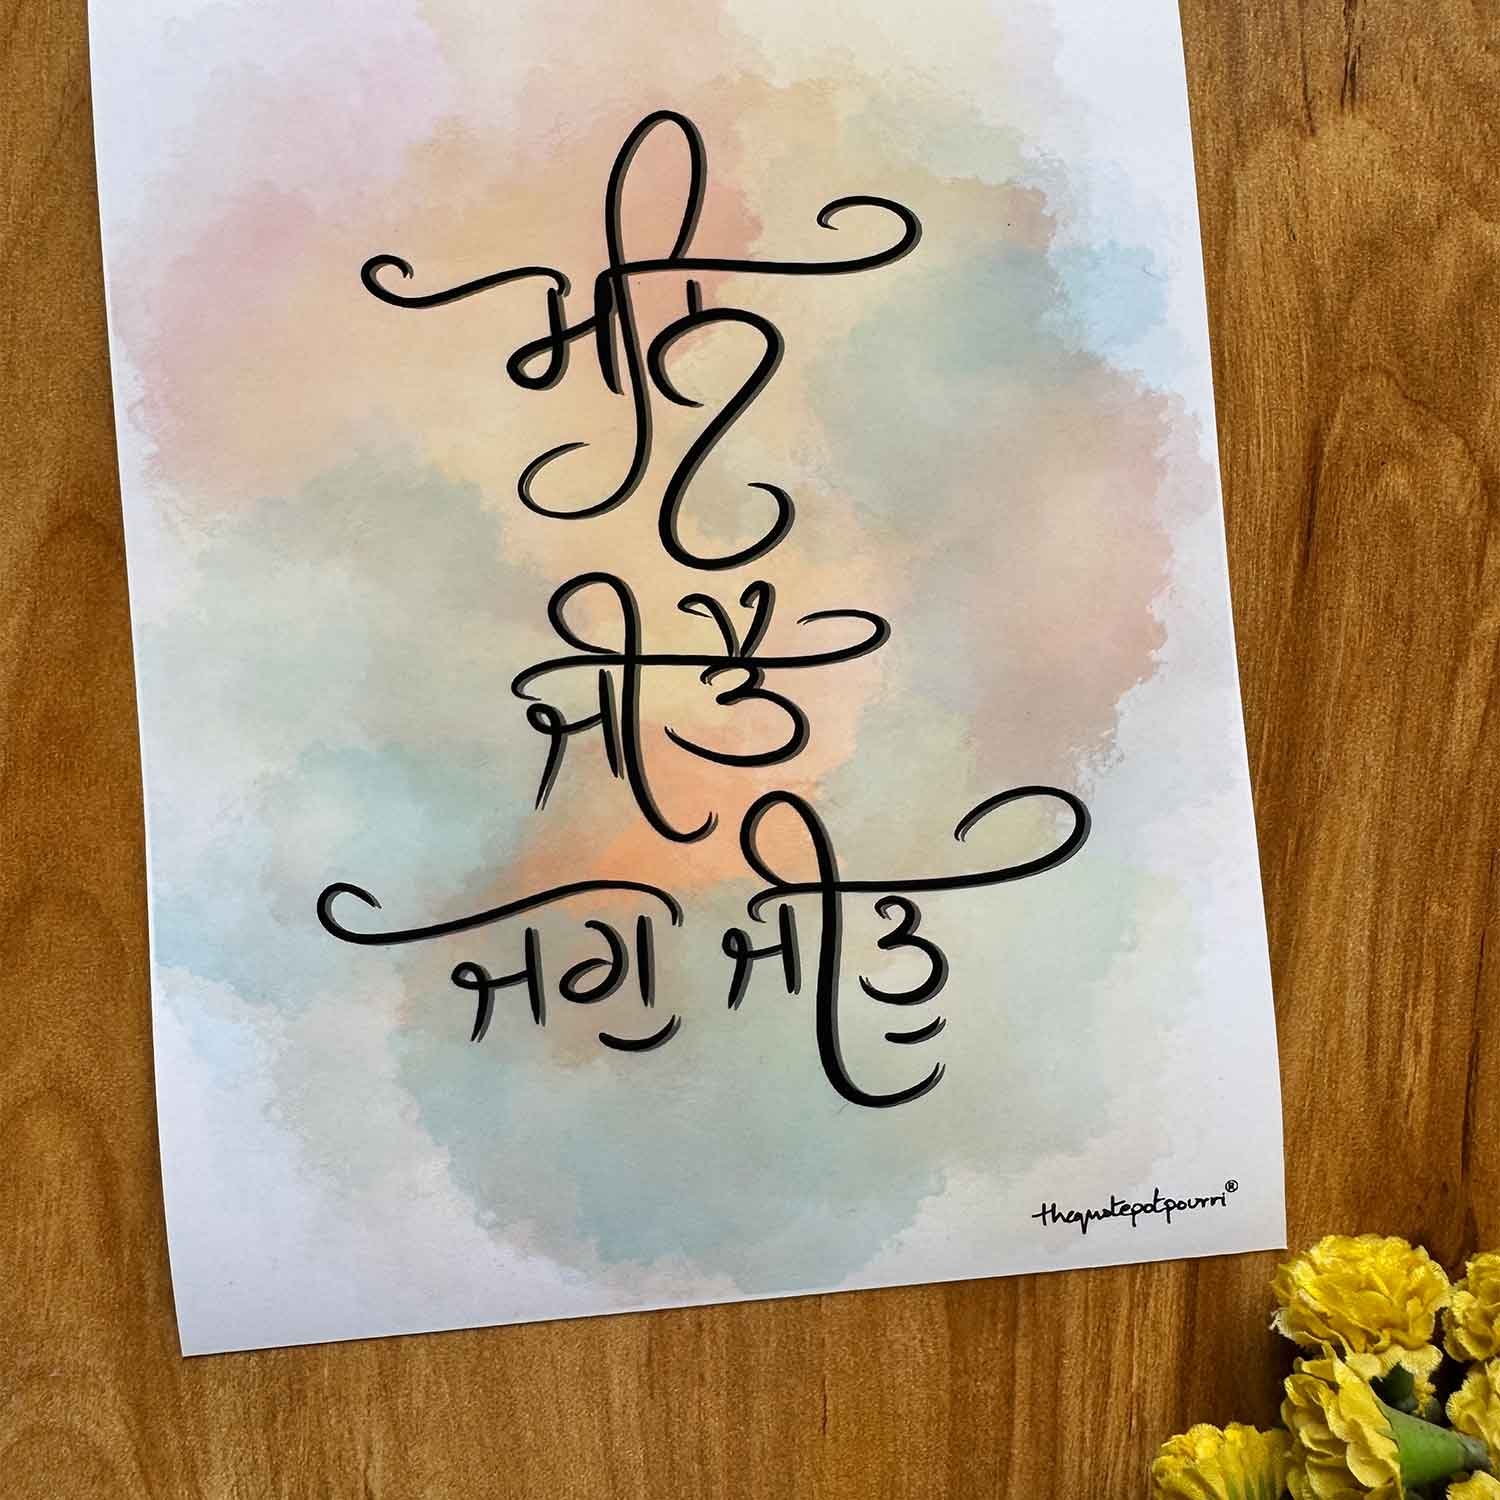 ਮਨਿ
ਜੀਤੈ
ਜਗੁ ਜੀਤੁ
thequotepotpourri®